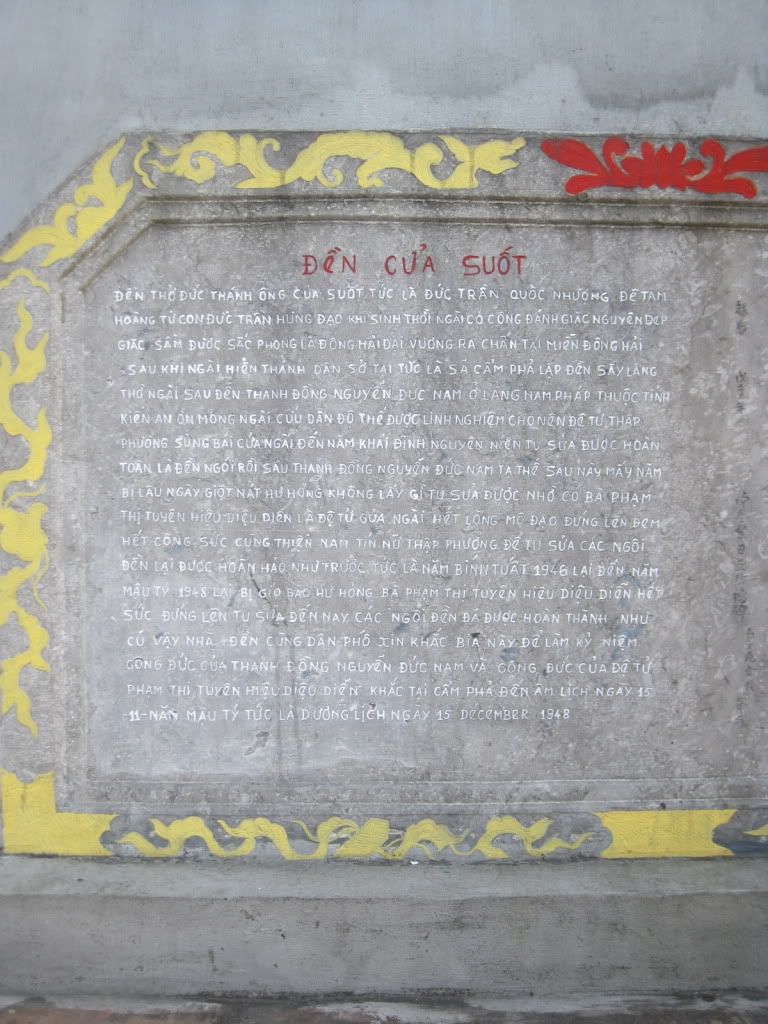 ĐỀN CỬA SUỐT
ĐỀN THỜ ĐỨC THÁNH ÔNG CỬA SUỐT TỨC LÀ ĐỨC TRẦN QUỐC NHƯỢNG, ĐỆ TAM
HOÀNG TỬ CON ĐỨC TRẦN HƯNG ĐẠO KHI SINH THỜI NGÀI CÓ CÔNG ĐÁNH GIẶC NGUYÊN DẸP
GIẶC SÂM ĐƯỢC SẮC PHONG LÀ ĐÔNG HẢI ĐẠI VƯƠNG RA CHẤN TẠI MIỀN ĐÔNG HẢI
SAU KHI NGÀI HIỂN THÁNH DÂN SỞ TẠI TỨC LÀ SÃ CẨM PHẢ LẬP ĐỀN SÂY LĂNG
THỜ NGÀI SAU ĐẾN THANH ĐỒNG NGUYỄN ĐỨC NAM Ở LÀNG NAM PHÁP THUỘC TỈNH
KIẾN AN ÔN MÔNG NGÀI CỨU DÂN ĐỘ THẾ ĐƯỢC LINH NGHIỆM CHO NÊN ĐỆ TỬ THẬP
PHƯƠNG SÙNG BÁI CỬA NGÀI ĐẾN NĂM KHẢI ĐỊNH NGUYÊN NIÊN TU SỬA ĐƯỢC HOÀN
TOÀN LÀ ĐỀN NGÓI RỒI SAU THANH ĐỒNG NGUYỄN ĐỨC NAM TẠ THẾ SAU NÀY MẤY NĂM
BỊ LÂU NGÀY GIỘT NÁT HƯ HỎNG KHÔNG LẤY GÌ TU SỬA ĐƯỢC NHỜ CÓ BÀ PHẠM
THỊ TUYỂN HIỆU DIỆU DIỄN LÀ ĐỆ TỬ CỦA NGÀI HẾT LÒNG MỘ ĐẠO ĐỨNG LÊN ĐEM
HẾT CÔNG SỨC CÙNG THIỆN NAM TÍN NỮ THẬP PHƯƠNG ĐỂ TU SỬA CÁC NGÔI
ĐỀN LẠI ĐƯỢC HOÀN HẢO NHƯ TRƯỚC TỨC LÀ NĂM BÍNH TUẤT 1946 LẠI ĐẾN NĂM
MẬU TÝ 1948 LẠI BỊ GIÓ BÃO HƯ HỎNG BÀ PHẠM THỊ TUYỂN HIỆU DIỆU DIỄN HẾT
SỨC ĐỨNG LÊN TU SỬA ĐẾN NAY CÁC NGÔI ĐỀN ĐÃ ĐƯỢC HOÀN THÀNH NHƯ
CŨ VẬY NHÀ ĐỀN CÙNG DÂN PHỐ XIN KHẮC BIA NÀY ĐỂ LÀM KỶ NIỆM
CÔNG ĐỨC CỦA THANH ĐỒNG NGUYỄN ĐỨC NAM VÀ CÔNG ĐỨC CỦA ĐỆ TỬ
PHẠM THỊ TUYỂN HIỆU DIỆU DIỄN KHẮC TẠI CẨM PHẢ ĐỀN ÂM LỊCH NGÀY 15
-11-NĂM MẬU TÝ TỨC LÀ DƯƠNG LỊCH NGÀY 15 DÉCEMBER 1948